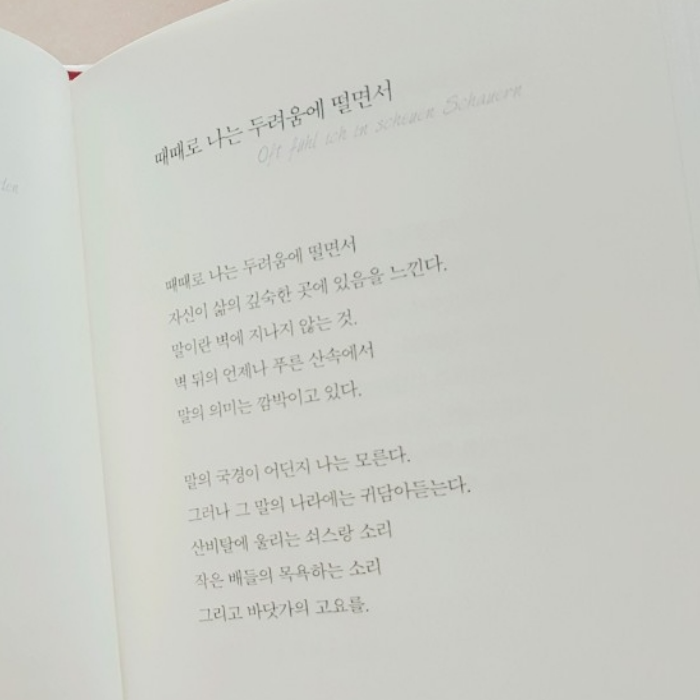 때때로 나는 두려움에 떨면서
Oft fühl ich in scheuen Schauern
때때로 나는 두려움에 떨면서
자신이 삶의 깊숙한 곳에 있음을 느낀다.
말이란 벽에 지나지 않는 것.
벽 뒤의 언제나 푸른 산속에서
말의 의미는 깜박이고 있다.
말의 국경이 어딘지 나는 모른다.
그러나 그 말의 나라에는 귀담아듣는다.
산비탈에 울리는 쇠스랑 소리
작은 배들의 목욕하는 소리
그리고 바닷가의 고요를.